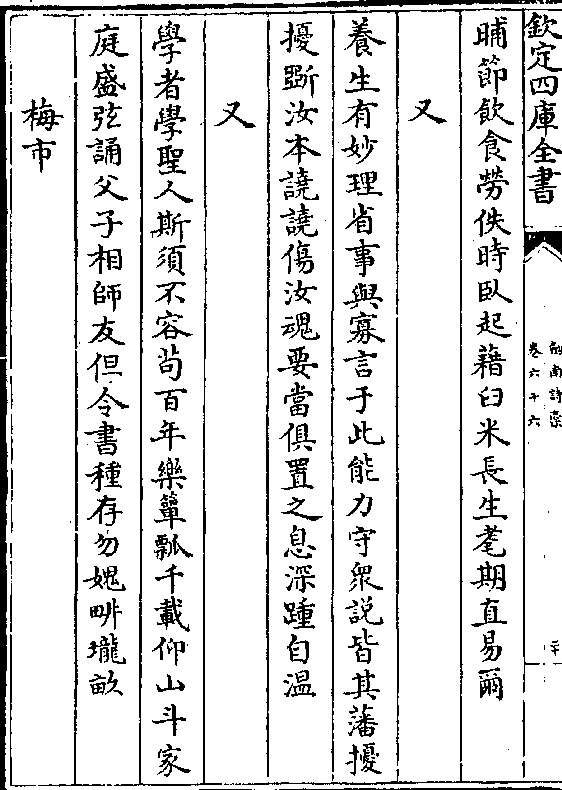 欽定四庫全書
劒南詩槀
卷六十六
晡節飲食勞佚時臥起藉臼米長生耄期直易爾
又
養生有妙理省事與寡言于此能力守衆説皆其藩擾
擾斲汝本譊譊傷汝魂要當俱置之息深踵自温
又
學者學聖人斯須不容苟百年樂簞瓢千載仰山斗家
庭盛弦誦父子相師友但令書種存勿媿畊壠畝
梅市